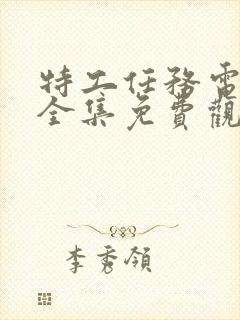 特工任務電
全集免費觀
李秀領